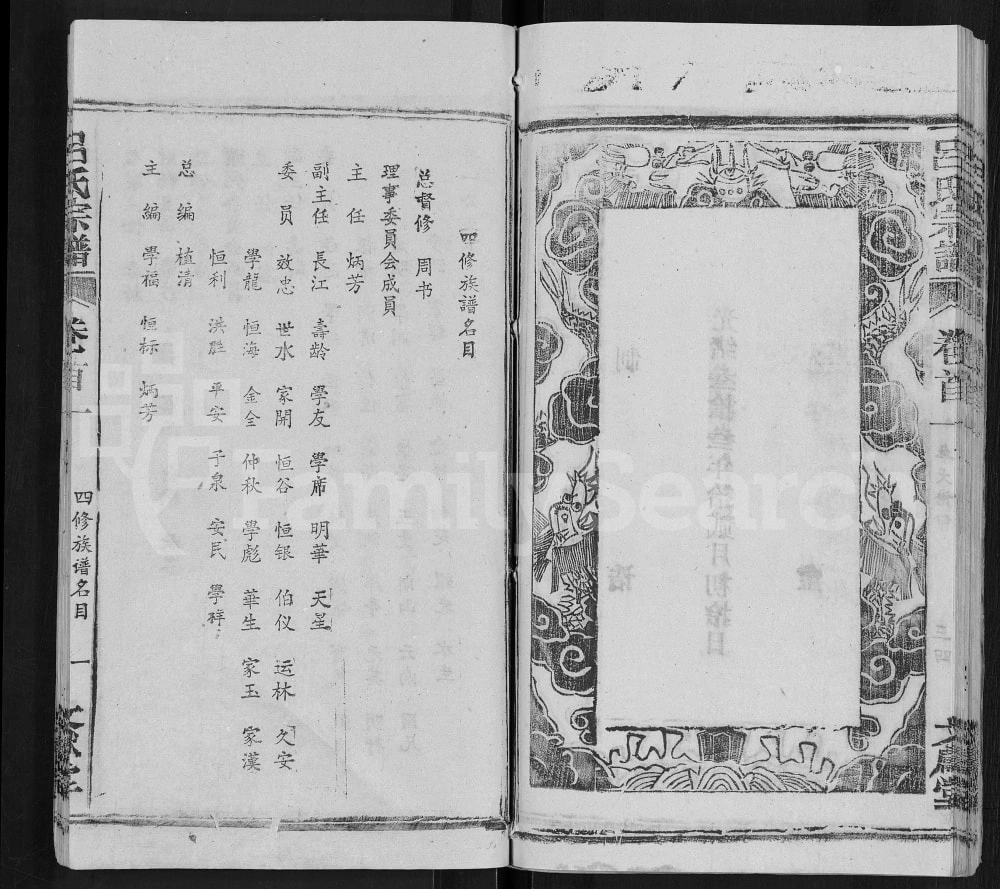 呂氏宗譜
卷首
一
文蔚堂
四修族譜名目
总督修 周书
理事委員会成員
主任 炳芳
副主任 長江 壽龄 學友 學席 明華 天星
委員 效忠 世水 家開 恒谷 恒银 伯仪 运林 久安
學龍 恒海 金全 仲秋 學彪 華生 家玉 家漢
恒利 洪胜 平安 于泉 安民 學祥
总編 植清
主編 學福 恒标 炳芳
吕氏宗譜
卷首
一
四修族谱名目
一
FamilySearch